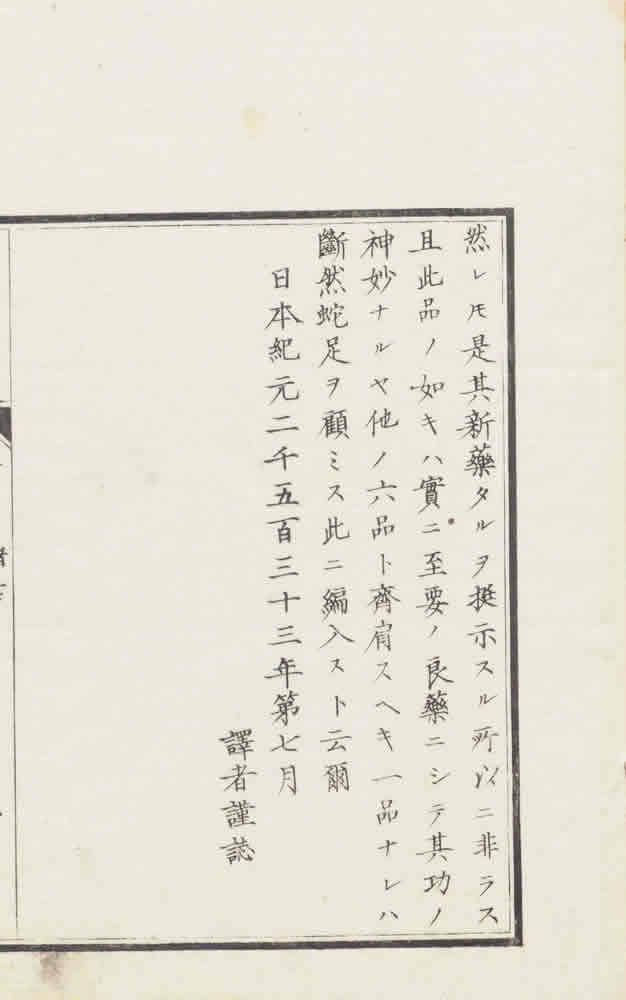 然レ𪜈是其新藥タルヲ挺示スル所以ニ非ラス
且此品ノ如キハ實ニ至要ノ良藥ニシテ其功ノ
神妙ナルヤ他ノ六品ト齊肩スヘキ一品ナレハ
斷然蛇足ヲ顧ミス此ニ編入スト云爾
日本紀元二千五百三十三年第七月
譯者謹誌